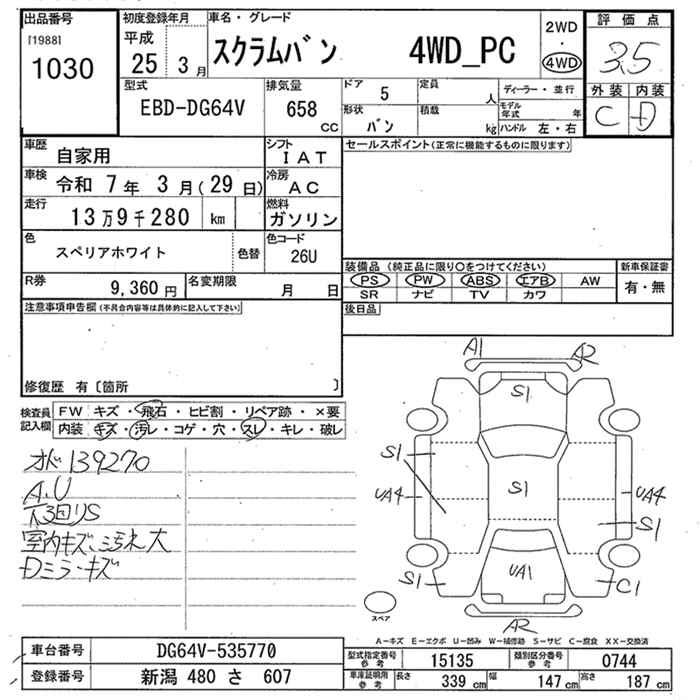 出品番号
[1988]
1030
初度登録年月
平成
25 3月
車名・グレード
スクラムバン 4WD_PC
2WD
・
4WD
評価点
3.5
外装 内装
C D
型式
EBD-DG64V
排気量
658
cc
ドア 5
形状 バン
定員 人
積載 kg
ディーラー・並行
モデル年式 年
ハンドル 左・右
車歴
自家用
シフト
IAT
車検 令和 7年 3月(29日)
冷房
AC
走行
13万9千280 km
燃料
ガソリン
色
スペリアホワイト
色替
色コード
26U
R券
9,360 円
名変期限
月 日
セールスポイント(正常に機能するものに限ります)
装備品(純正品に限り○をつけてください)
PS PW ABS エアB AW
SR ナビ TV カワ
新車保証書
有・無
後日品
注意事項申告欄(不具合内容等は具体的に記入して下さい)
修復歴 有〔箇所 〕
検査員
記入欄
FW キズ・飛石・ヒビ割・リペア跡・×要
内装 キズ・汚レ・コゲ・穴・スレ・キレ・破レ
オド139270
A.U
下回りS
室内キズ、汚れ大
Dミラーキズ
A1 A2
S1
S1
UA4
S1
UA4
S1
UA1
S1
C1
A2
スペア
A-キズ E-エクボ U-凹み W-補修跡 S-サビ C-腐食 XX-交換済
車台番号
DG64V-535770
登録番号
新潟 480 さ 607
型式指定番号
参考
15135
類別区分番号
参考
0744
車庫証明用
参考
長さ 339 cm
幅 147 cm
高さ 187 cm